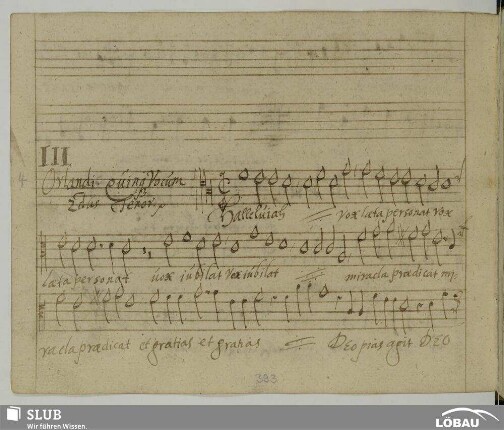 III
4
Orlandi Quinq Vocum
2dus Tenor.
Halleluias vox læta personat vox
læta personat vox iubilat vox iubilat miracla prædicat mi
racla prædicat et gratias et gratias Deo pias agit. DEO
303
SLUB
Wir führen Wissen.
LÖBAU